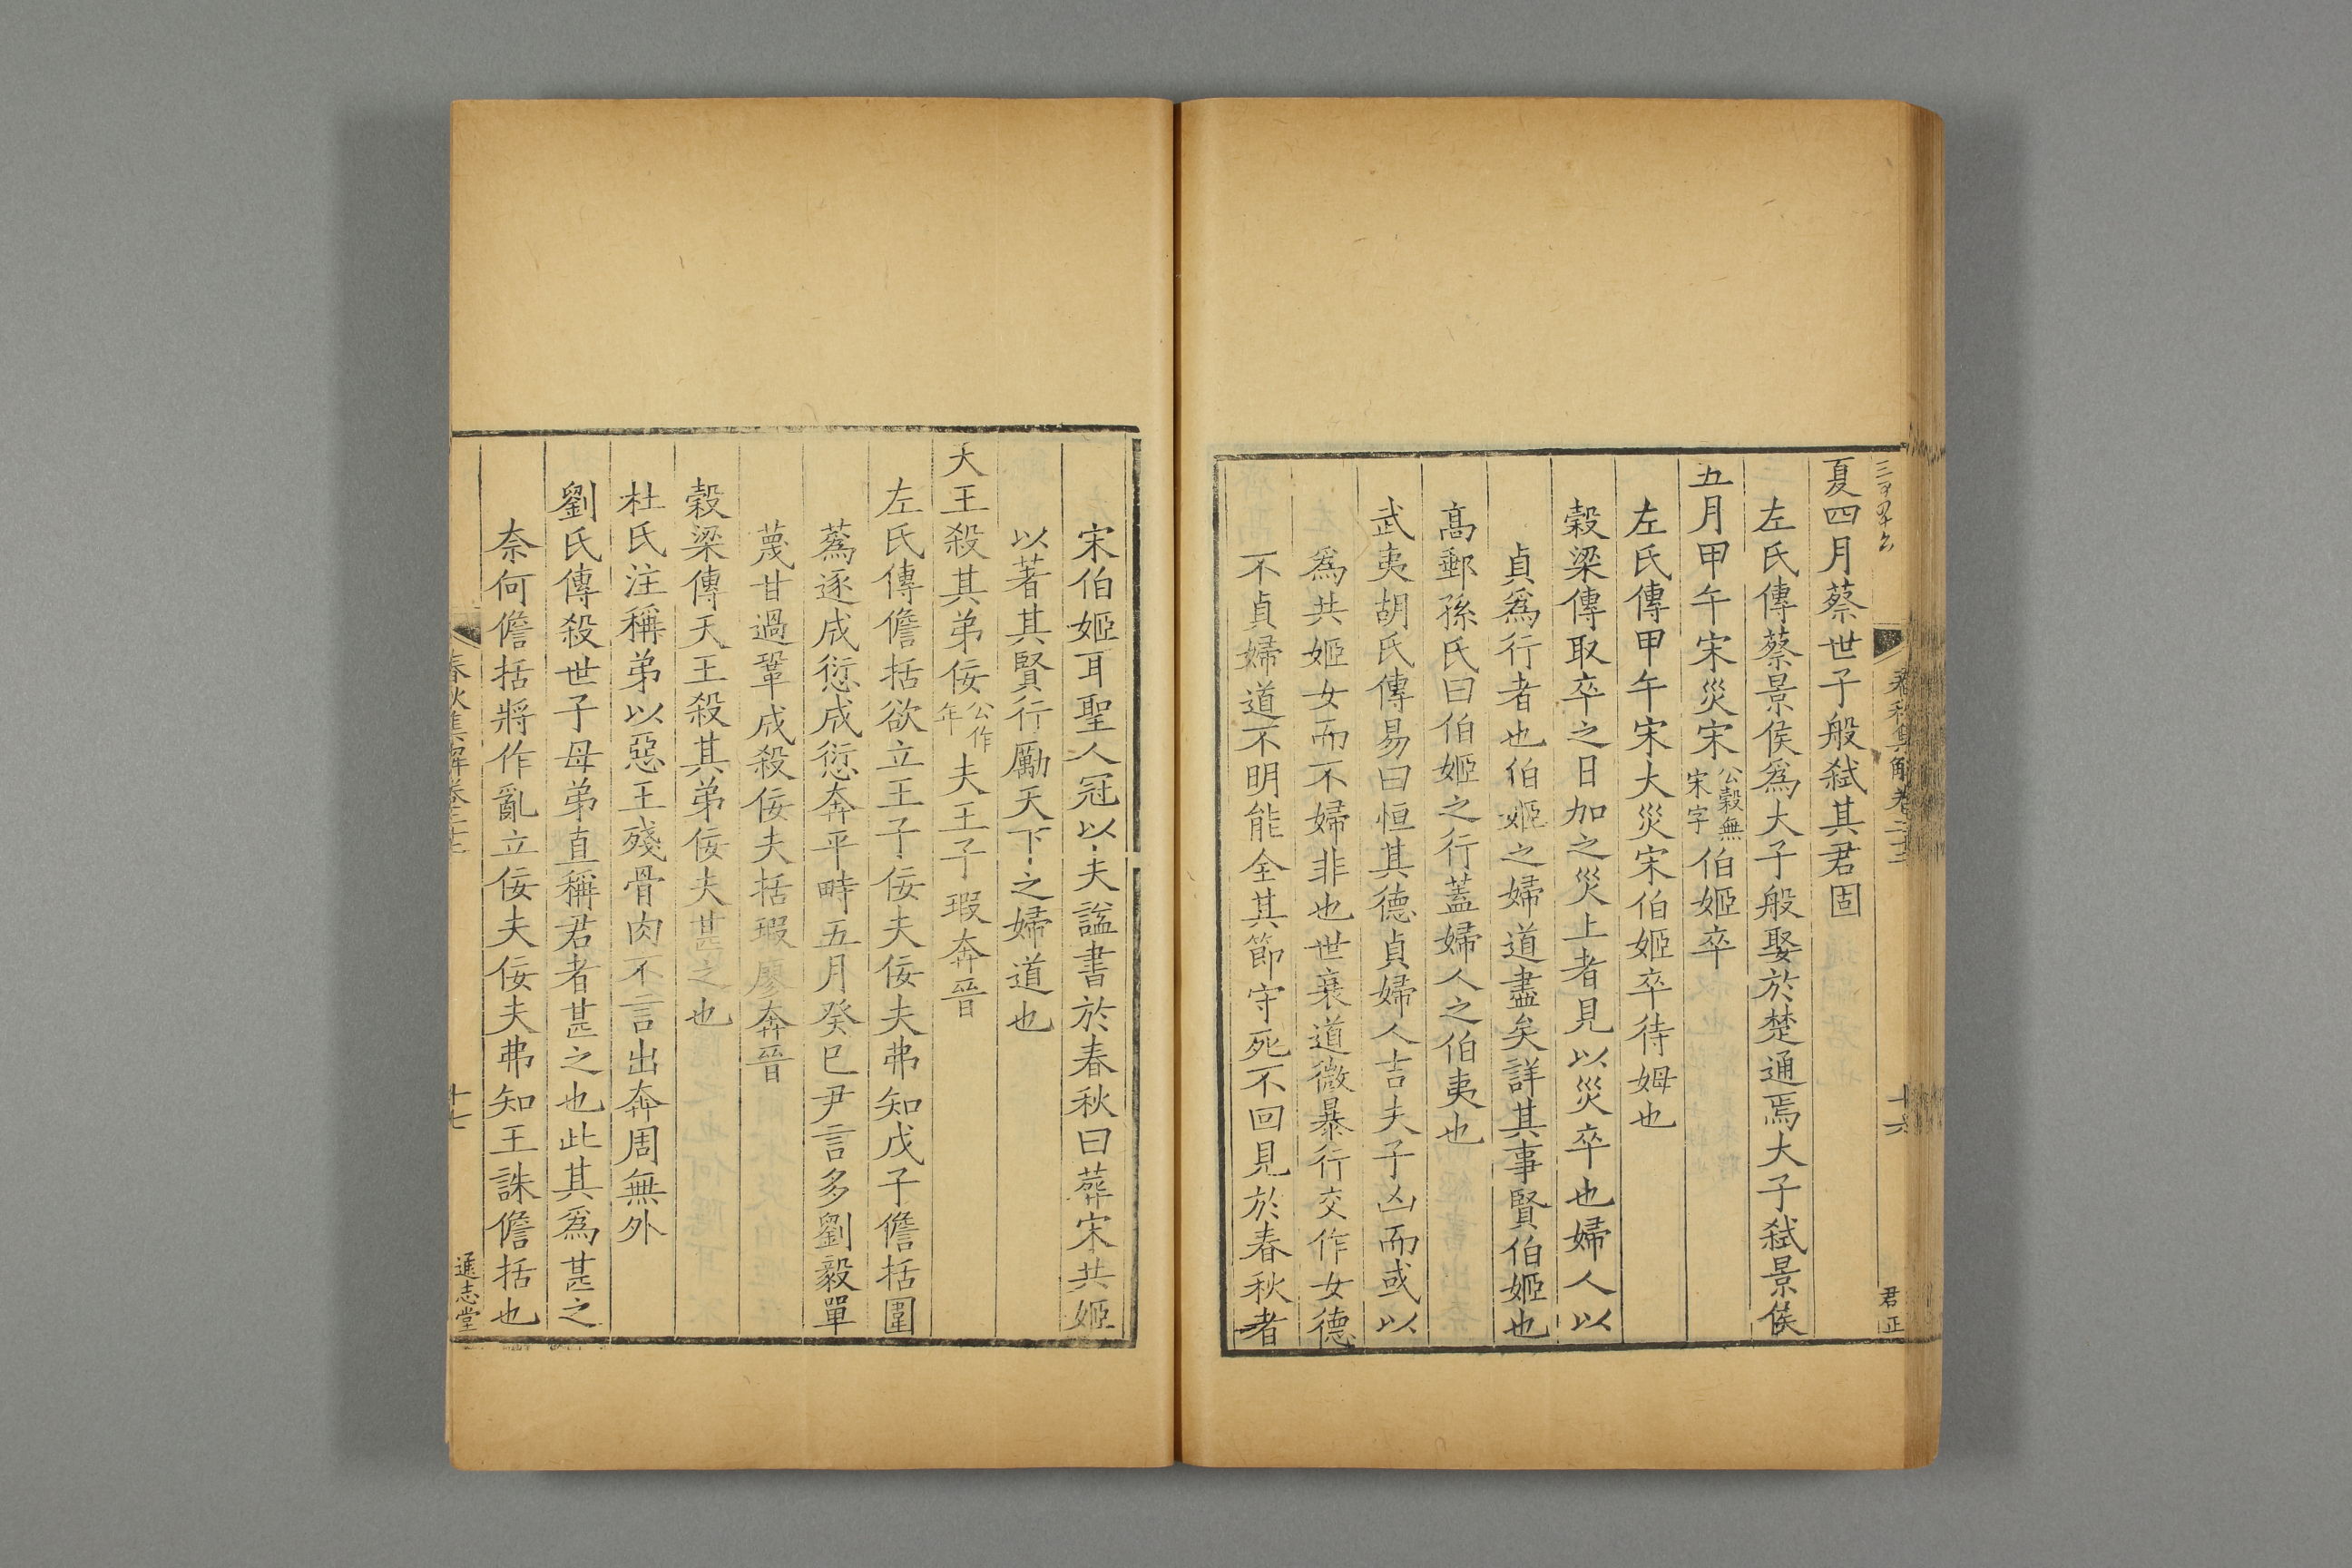 夏四月蔡世子般弑其君固
左氏傳蔡景侯爲大子般娶於楚通焉大子弑景侯
五月甲午宋災宋公穀無宋字伯姬卒
左氏傳甲午宋大災宋伯姬卒待姆也
穀梁傳取卒之日加之災上者見以災卒也婦人以
貞爲行者也伯姬之婦道盡矣詳其事賢伯姬也
高郵孫氏曰伯姬之行蓋婦人之伯夷也
武夷胡氏傳易曰恒其德貞婦人吉夫子凶而或以
爲共姬女而不婦非也世衰道微暴行交作女德
不貞婦道不明能全其節守死不回見於春秋者
宋伯姬耳聖人冠以夫謚書於春秋曰葬宋共姬
以著其賢行勵天下之婦道也
天王殺其弟佞公作年夫王子瑕奔晉
左氏傳儋括欲立王子佞夫佞夫弗知戊子儋括圍
蒍逐成愆成愆奔平畤五月癸巳尹言多劉毅單
蔑甘過鞏成殺佞夫括瑕廖奔晉
穀梁傳天王殺其弟佞夫甚之也
杜氏注稱弟以惡王殘骨肉不言出奔周無外
劉氏傳殺世子母弟直稱君者甚之也此其爲甚之
奈何儋括將作亂立佞夫佞夫弗知王誅儋括也
春秋集解卷二十三
十六
君正
十七
通志堂